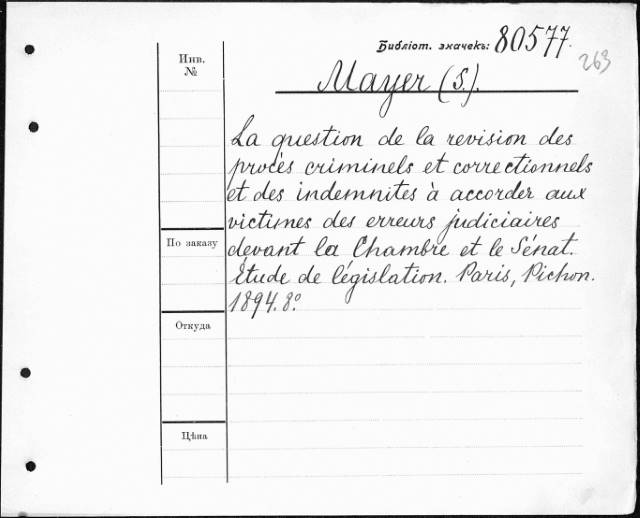 Библіот. значекъ: 80577.
263
Инв.
№
Mayer (S.).
La question de la revision des
procès criminels et correctionnels
et des indemnites à accorder aux
victimes des erreurs judiciaires
По заказу
devant la Chambre et le Sénat.
Étude de législation. Paris, Pichon.
1894. 8º.
Откуда
Цѣна